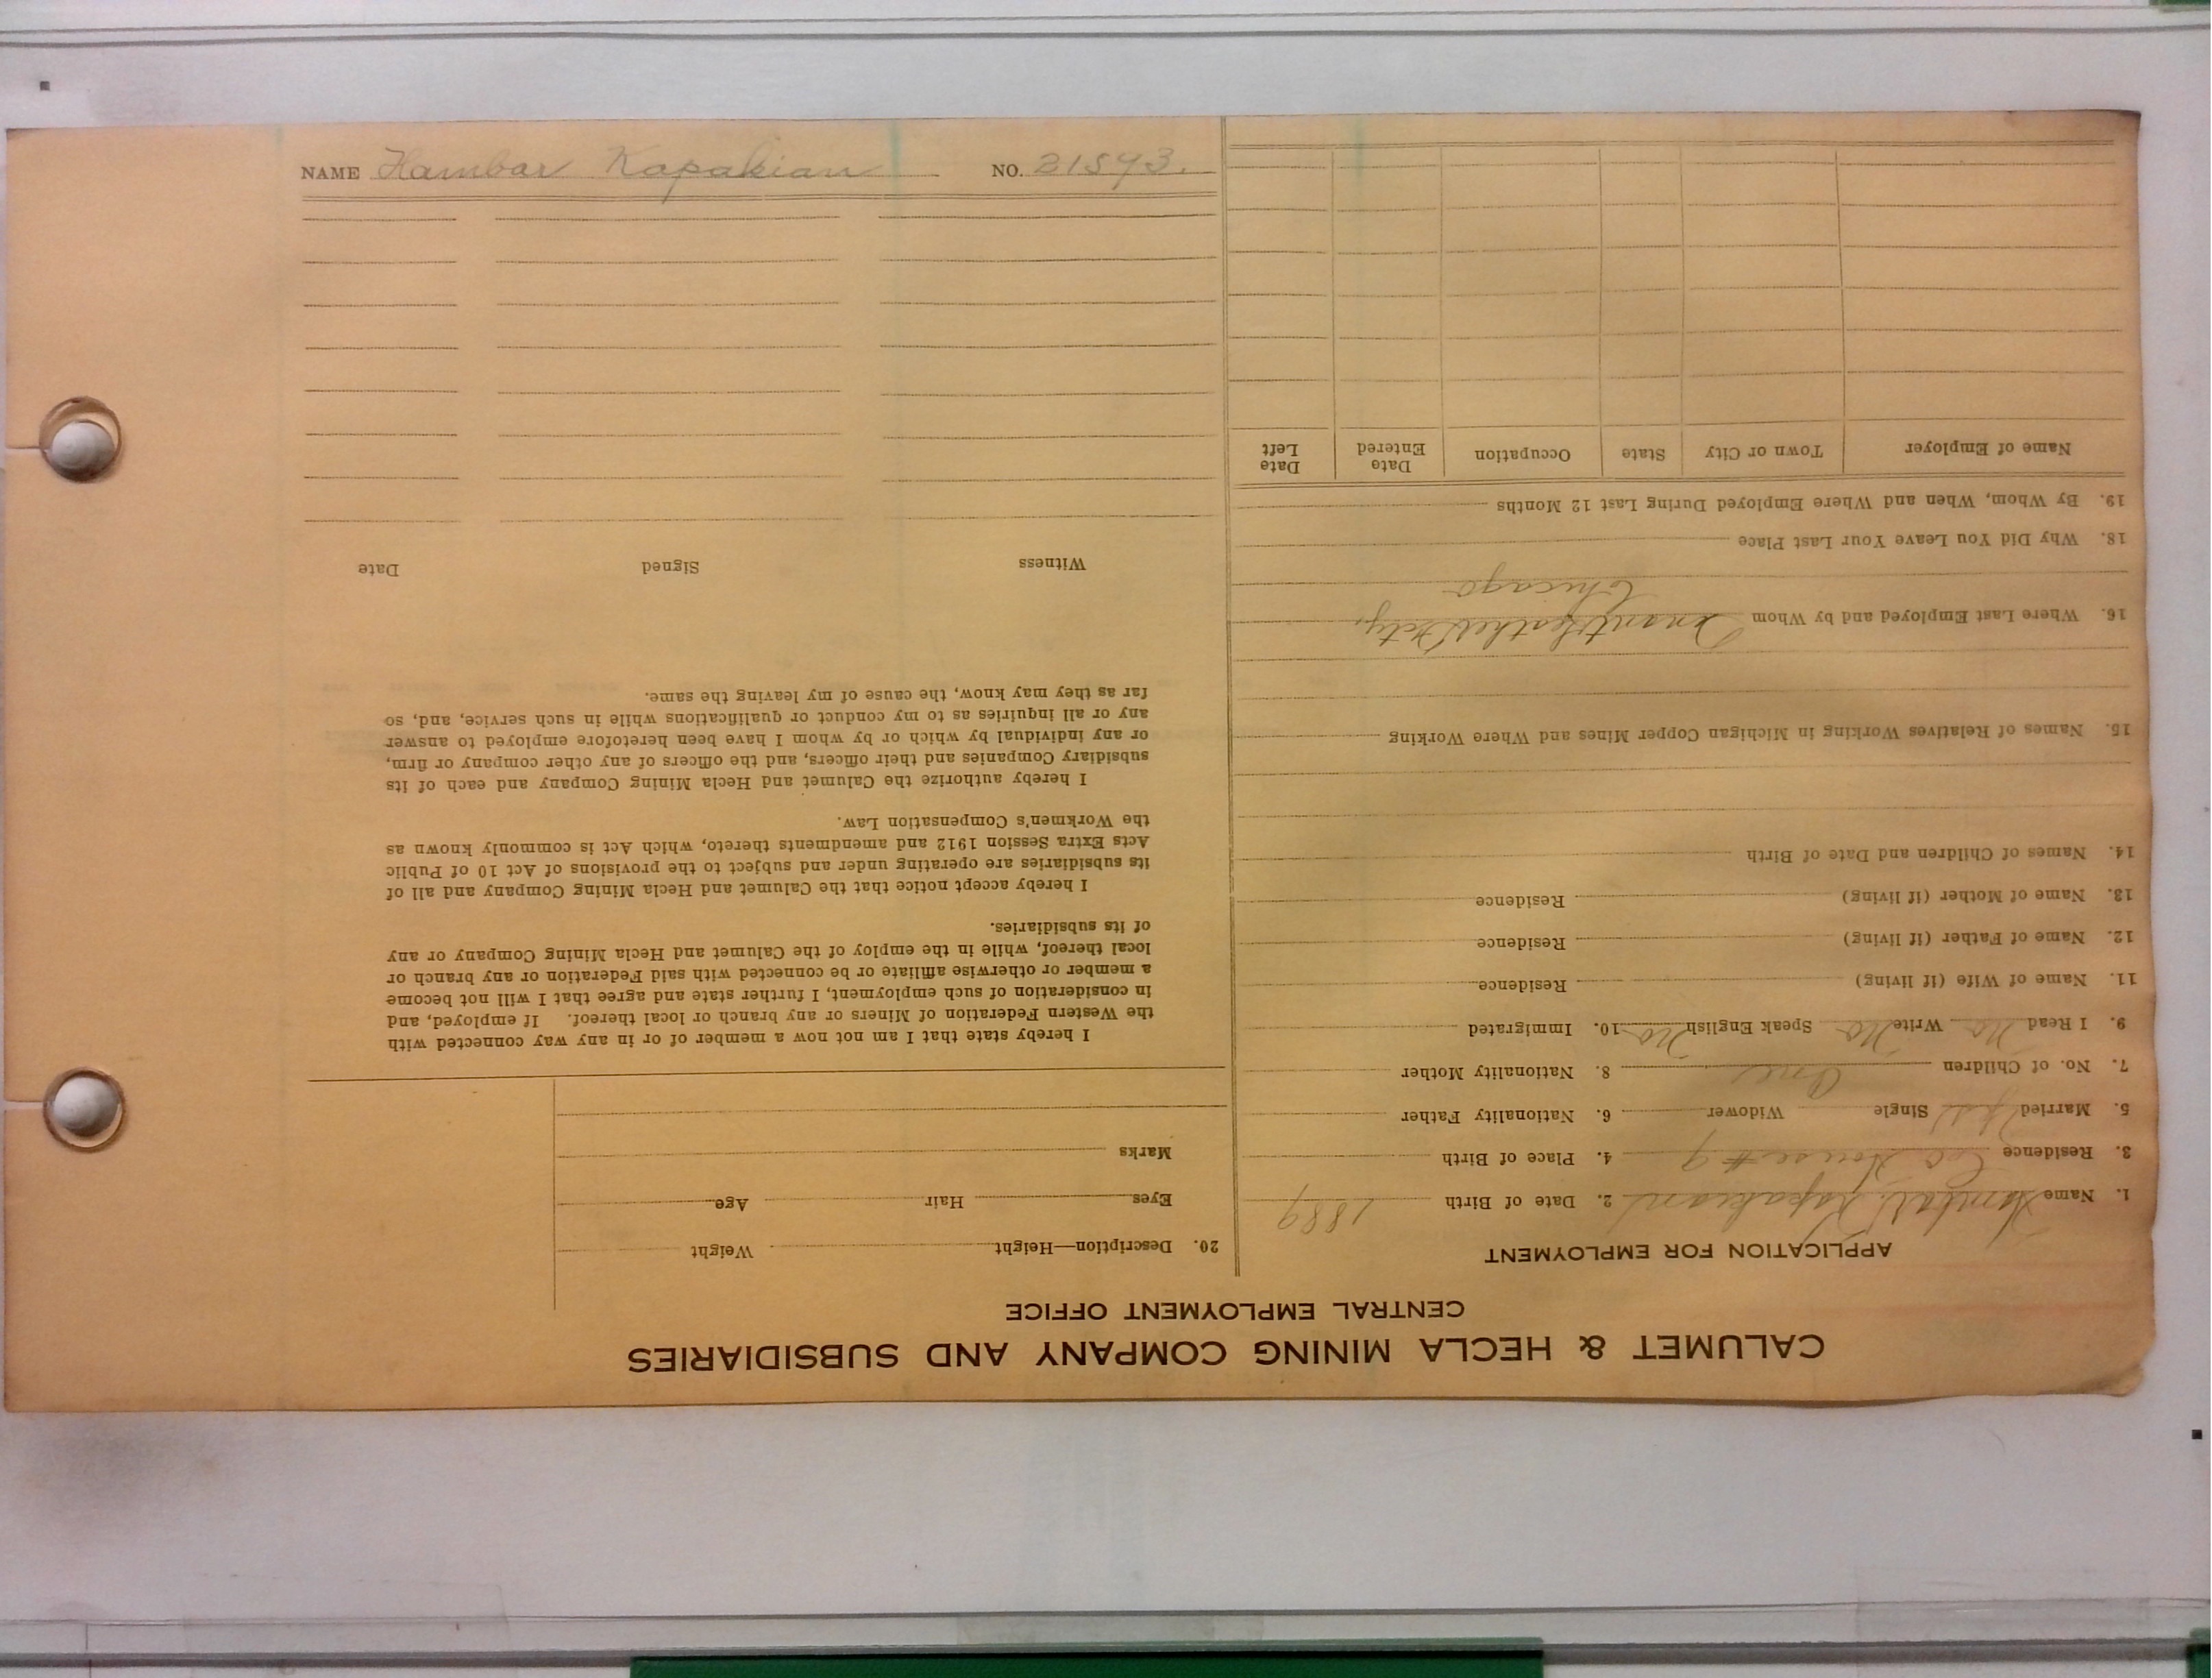 NAME Hambar Kapakian NO. 21593.
CALUMET & HECLA MINING COMPANY AND SUBSIDIARIES
CENTRAL EMPLOYMENT OFFICE
APPLICATION FOR EMPLOYMENT
1. Name Hambar Kapakian 2. Date of Birth 1889
3. Residence Co House #9 4. Place of Birth
5. Married Single Widower 6. Nationality Father
7. No. of Children One 8. Nationality Mother
9. I Read No Write No Speak English No 10. Immigrated
11. Name of Wife (if living) Residence
12. Name of Father (if living) Residence
13. Name of Mother (if living) Residence
14. Names of Children and Date of Birth
15. Names of Relatives Working in Michigan Copper Mines and Where Working
16. Where Last Employed and by Whom
Chicago
18. Why Did You Leave Your Last Place
19. By Whom, When and Where Employed During Last 12 Months
Name of Employer Town or City State Occupation Date Entered Date Left
20. Description—Height Weight
Eyes Hair Age
Marks
I hereby state that I am not now a member of or in any way connected with
the Western Federation of Miners or any branch or local thereof. If employed, and
in consideration of such employment, I further state and agree that I will not become
a member or otherwise affiliate or be connected with said Federation or any branch or
local thereof, while in the employ of the Calumet and Hecla Mining Company or any
of its subsidiaries.
I hereby accept notice that the Calumet and Hecla Mining Company and all of
its subsidiaries are operating under and subject to the provisions of Act 10 of Public
Acts Extra Session 1912 and amendments thereto, which Act is commonly known as
the Workmen's Compensation Law.
I hereby authorize the Calumet and Hecla Mining Company and each of its
subsidiary Companies and their officers, and the officers of any other company or firm,
or any individual by which or by whom I have been heretofore employed to answer
any or all inquiries as to my conduct or qualifications while in such service, and, so
far as they may know, the cause of my leaving the same.
Witness Signed Date